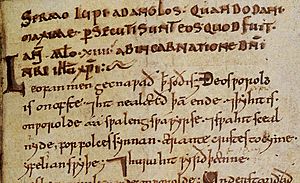 SERMO LUPI AD ANGLOS. QUANDO DANI
MAXIME PSECUTI SUNT EOS QUOD FUIT
XIIII. AB INCARNATIONE DN̄I
NRI IHU XPI:
Leofan men gecnawað ꝥ soð is. Ðeos worold
is on ofste ⁊ hit nealæcð þā ende. ⁊ þy hit is
on worolde aa swa leng swa wyrse. ⁊ swa hit sceal
nyde for folces synnan ær antecristes tocyme
yfelian swyþe. ⁊ huru hit wyrð þænne
worolde. Understandað